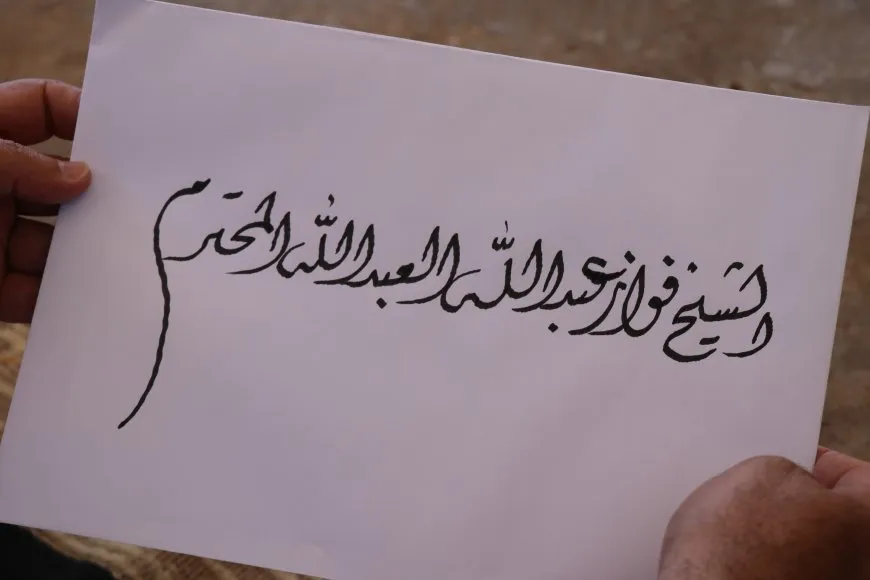 الشيخ فواز عبد الله العبد الله المحترم